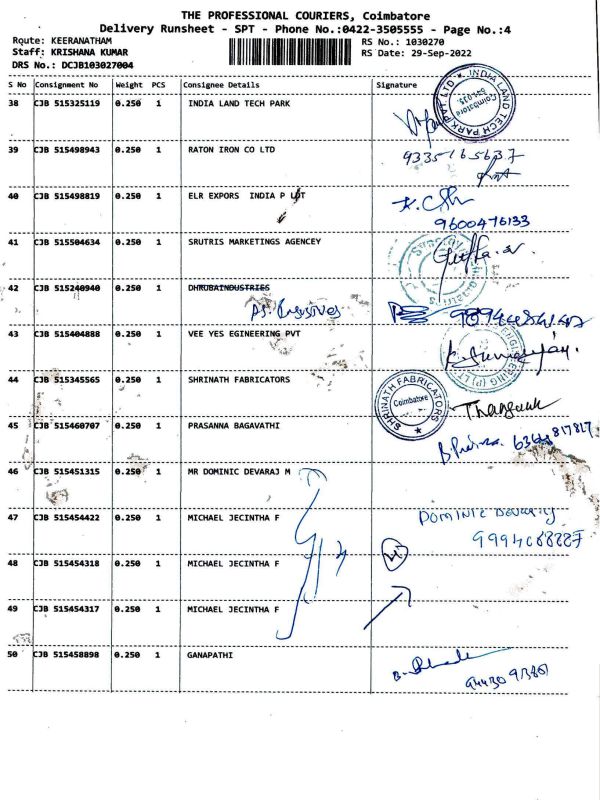 THE PROFESSIONAL COURIERS, Coimbatore
Delivery Runsheet - SPT - Phone No.:0422-3505555 - Page No.:4
Route: KEERANATHAM RS No.: 1030270
Staff: KRISHANA KUMAR RS Date: 29-Sep-2022
DRS No.: DCJB103027004
S No Consignment No Weight PCS Consignee Details Signature
38 CJB 515325119 0.250 1 INDIA LAND TECH PARK
INDIA LAND TECH PARK PVT. LTD Coimbatore
39 CJB 515498943 0.250 1 RATON IRON CO LTD
9335165637
40 CJB 515498819 0.250 1 ELR EXPORS INDIA P LMT
9600476133
41 CJB 515504634 0.250 1 SRUTRIS MARKETINGS AGENCEY
42 CJB 515240940 0.250 1 DHRUBAINDUSTRIES
43 CJB 515404888 0.250 1 VEE YES EGINEERING PVT
44 CJB 515345565 0.250 1 SHRINATH FABRICATORS
SHRINATH FABRICATORS Coimbatore
45 CJB 515460707 0.250 1 PRASANNA BAGAVATHI
817817
46 CJB 515451315 0.250 1 MR DOMINIC DEVARAJ M
47 CJB 515454422 0.250 1 MICHAEL JECINTHA F
DOMINIC DEVARAJ
9994088887
48 CJB 515454318 0.250 1 MICHAEL JECINTHA F
49 CJB 515454317 0.250 1 MICHAEL JECINTHA F
50 CJB 515458898 0.250 1 GANAPATHI